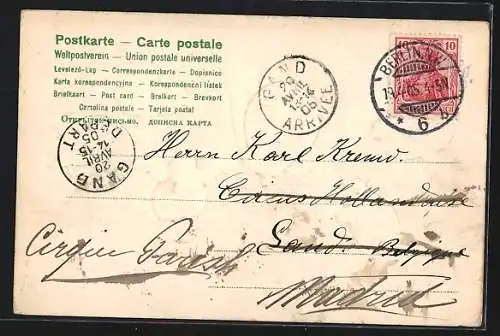 Postkarte — Carte postale
Weltpostverein — Union postale universelle
Levelező-Lap — Correspondenzkarte — Dopisnice
Karta korespondencyjna — Korespondenční lístek
Briefkaart — Post card — Brefkort — Brevkort
Cartolina postale — Tarjeta postal
ОТКРЫТОЕ ПИСЬМО. ДОПИСНА КАРТА
10 10
BERLIN
6
GAND
20
AVRIL
05
ARRIVEE
GAND
20
AVRIL
14-15
05
DEPART
Herrn Karl
Circus Hollandaise
Gand. Belgique
Cirque Parish
Madrid